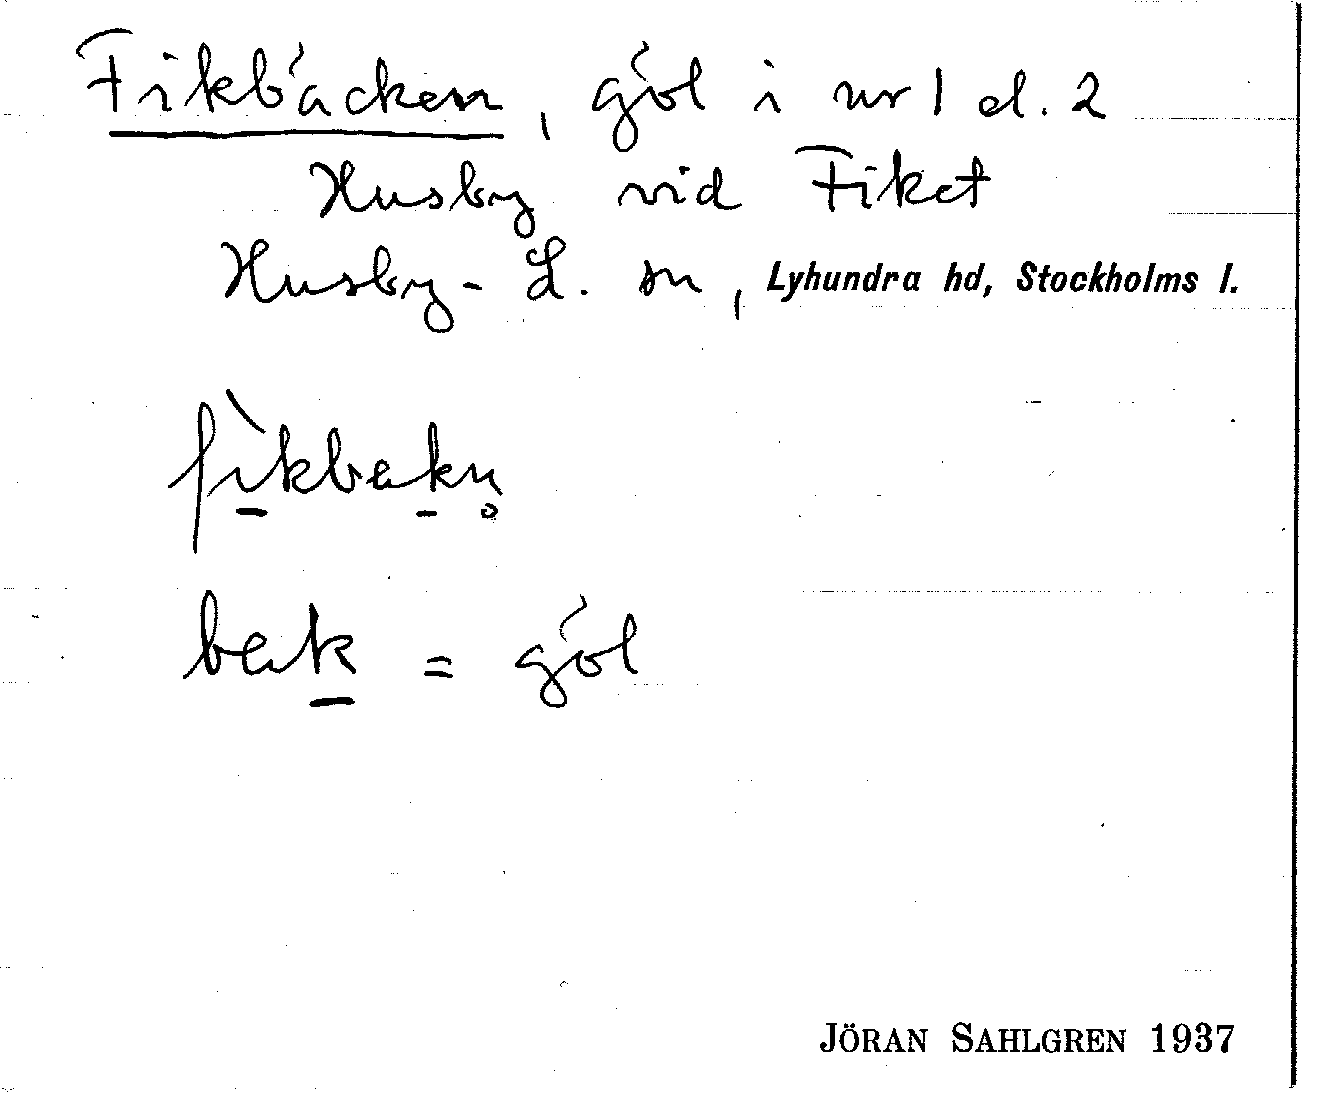 Fikbäcken, göl i nr 1 d. 2
Husby vid Fiket
Husby-L. sn, Lyhundra hd, Stockholms l.
fìkbekn̥
bek = göl
JÖRAN SAHLGREN 1937